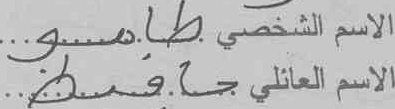 الاسم الشخصي طاهو
الاسم العائلي حافظ